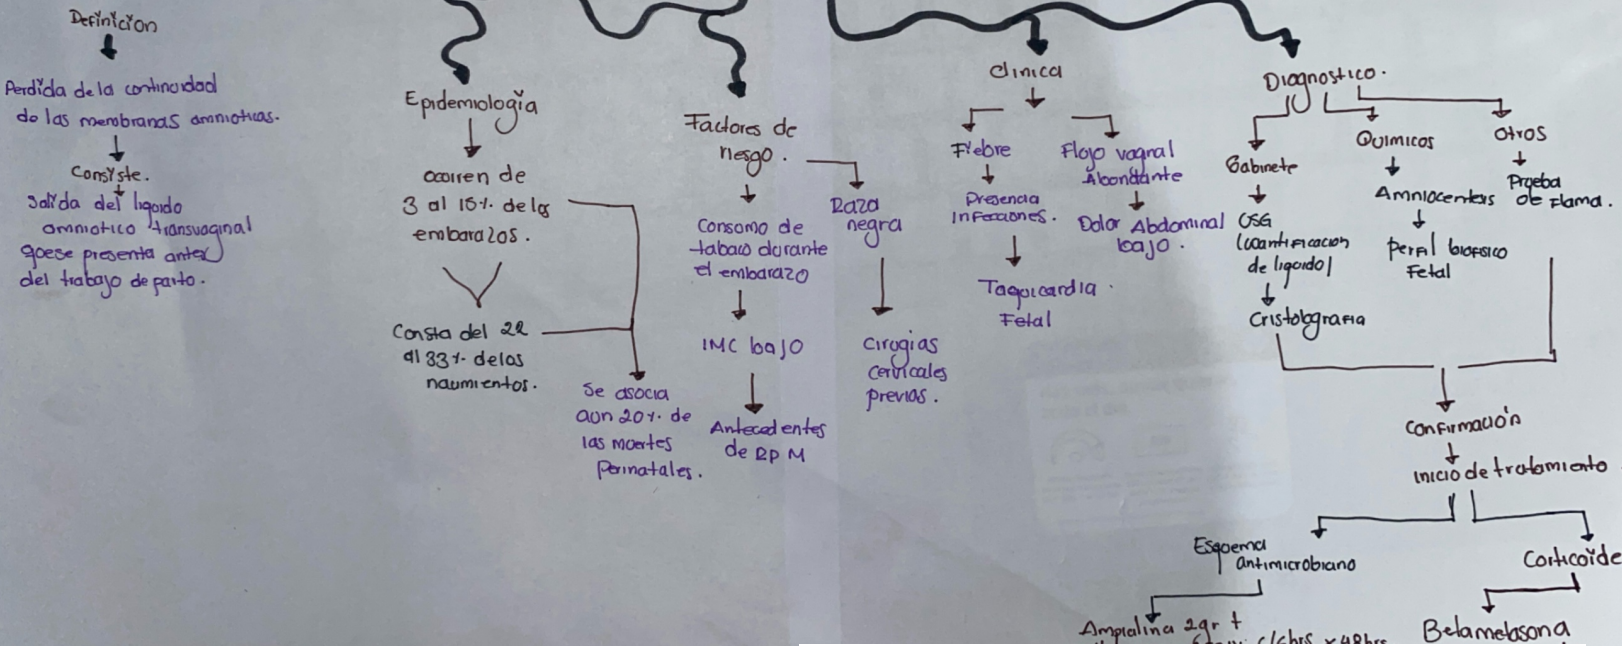 Definicion
Perdida de la continuidad
de las membranas amnioticas.
Consiste.
Salida del liquido
amniotico transvaginal
que se presenta antes
del trabajo de parto.
Epidemiologia
ocurren de
3 al 15% de los
embarazos.
Consta del 22
al 33% de los
nacimientos.
Se asocia
a un 20% de
las muertes
Perinatales.
Factores de
riesgo.
Consumo de
tabaco durante
el embarazo
IMC bajo
Antecedentes
de RPM
Raza
negra
Cirugias
cervicales
previas.
Clinica
Fiebre
Presencia
Infecciones.
Taquicardia
Fetal
Flujo vaginal
Abundante
Dolor Abdominal
bajo.
Diagnostico.
Gabinete
USG
(cuantificacion
de liquido)
Cristolografia
Quimicos
Amniocentesis
perfil biofisico
Fetal
Otros
Prueba
de Flama.
Confirmación
inicio de tratamiento
Esquema
antimicrobiano
Ampicilina 2gr +
c/6hrs x 48hrs
Corticoide
Betametasona